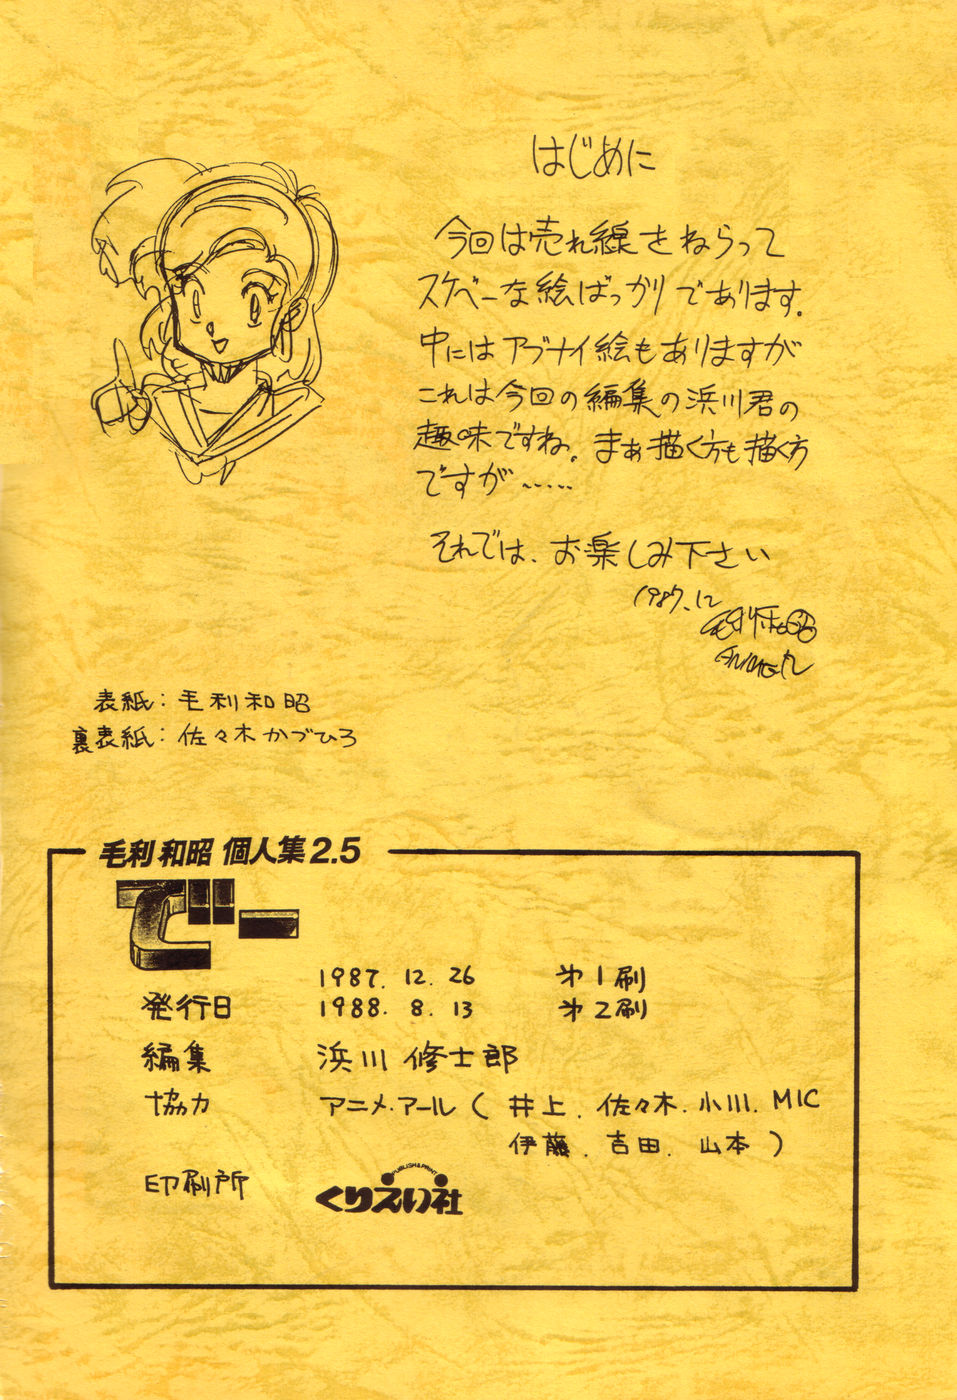 はじめに
今回は売れ線をねらって
スケベーな絵ばっかりであります。
中にはアブナイ絵もありますが
これは今回の編集の浜川君の
趣味ですね。まぁ描く方も描く方
ですが……
それでは、お楽しみ下さい
1987.12
毛利和昭
表紙：毛利和昭
裏表紙：佐々木かづひろ
毛利和昭 個人集2.5
でー
1987. 12. 26 第1刷
発行日 1988. 8. 13 第2刷
編集 浜川 修士郎
協力 アニメ・アール（井上．佐々木．小川．MIC
伊藤．吉田．山本）
PUBLISH&PRINT
印刷所 くりえい社